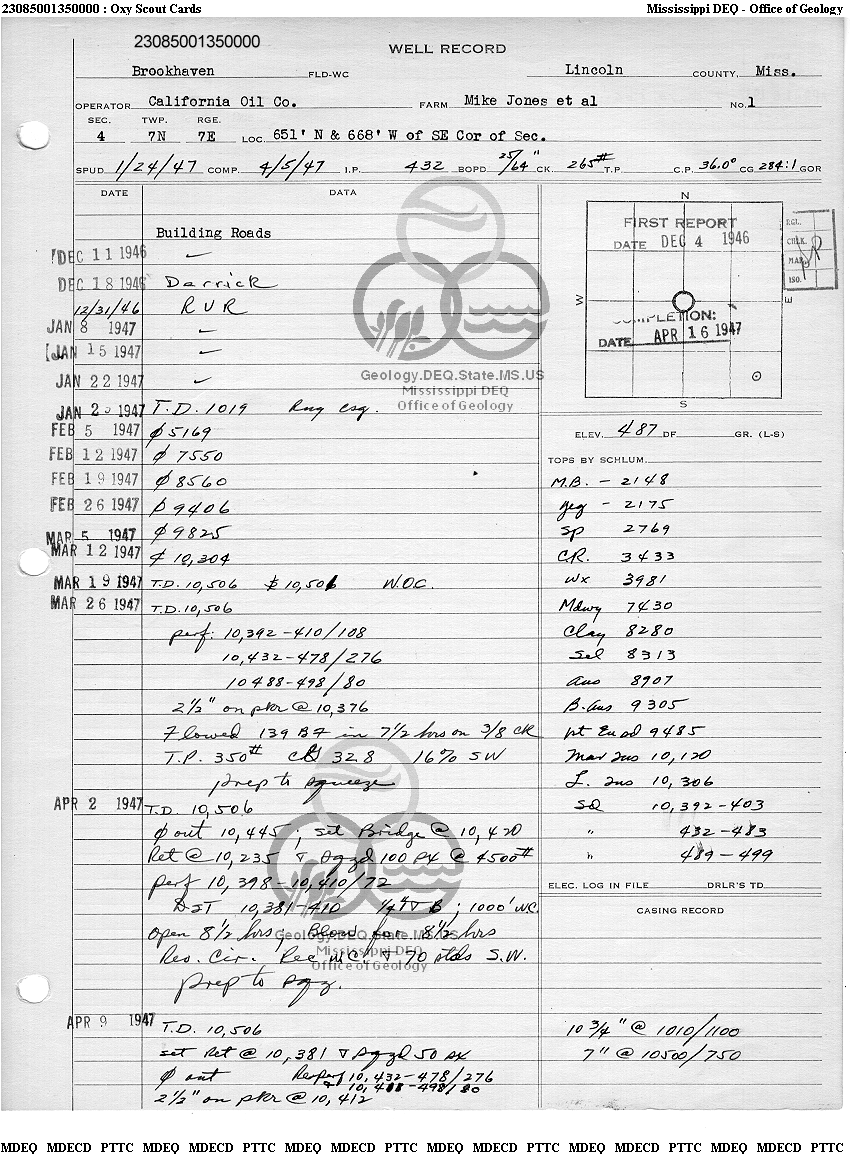 23085001350000 : Oxy Scout Cards Mississippi DEQ - Office of Geology
23085001350000
WELL RECORD
Brookhaven FLD-WC Lincoln COUNTY, Miss.
OPERATOR California Oil Co. FARM Mike Jones et al No. 1
SEC. TWP. RGE.
4 7N 7E LOC. 651' N & 668' W of SE Cor of Sec.
SPUD 1/24/47 COMP. 4/5/47 I.P. 432 BOPD 25/64" CK. 265# T.P. C.P. 36.0° CG 284:1 GOR
DATE DATA
Building Roads
DEC 11 1946
DEC 18 1946 Derrick
12/31/46 RUR
JAN 8 1947
JAN 15 1947
JAN 22 1947
JAN 2 1947 T.D. 1019 Rng csg.
FEB 5 1947 ϕ 5169
FEB 12 1947 ϕ 7550
FEB 19 1947 ϕ 8560
FEB 26 1947 ϕ 9406
MAR 5 1947 ϕ 9825
MAR 12 1947 ϕ 10,304
MAR 19 1947 T.D. 10,506 10,506 W.O.C.
MAR 26 1947 T.D. 10,506
perf: 10,392-410/108
10,432-478/276
10488-498/80
2 1/2" on pkr @ 10,376
Flowed 139 BF in 7 1/2 hrs on 3/8 CK
T.P. 350# 32.8 16% SW
prep to squeeze
APR 2 1947 T.D. 10,506
ϕ out 10,445; set Bridge @ 10,420
Ret @ 10,235 & sqzd 100 sx @ 4500#
perf 10,398-10,410/72
DST 10,381-410 1/4" T & B; 1000' WC.
open 8 1/2 hrs, Blow for 8 1/2 hrs
Rev. Cir. Rec WC. & 70 stds S.W.
prep to sqz.
APR 9 1947 T.D. 10,506
set Ret @ 10,381 & sqzd 50 sx
ϕ out Reperf 10,432-478/276
& 10,488-498/80
2 1/2" on pkr @ 10,412
Geology.DEQ.State.MS.US
Mississippi DEQ
Office of Geology
Geology.DEQ.State.MS.US
Mississippi DEQ
Office of Geology
N
W
E
S
FIRST REPORT
DATE DEC 4 1946
COMPLETION:
DATE APR 16 1947
RGL.
CHLK.
MAP
ISO.
ELEV. 487 DF GR. (L-S)
TOPS BY SCHLUM.
M.B. - 2148
Jeg - 2175
Sp 2769
CR. 3433
Wx 3981
Mdwy 7430
Clay 8280
Sel 8313
Aus 8907
B. Aus 9305
pt Eu sd 9485
Mar Tus 10,120
L. Tus 10,306
Sd 10,392-403
" 432-483
" 489-499
ELEC. LOG IN FILE DRLR'S TD
CASING RECORD
10 3/4" @ 1010/1100
7" @ 10500/750
MDEQ MDECD PTTC MDEQ MDECD PTTC MDEQ MDECD PTTC MDEQ MDECD PTTC MDEQ MDECD PTTC MDEQ MDECD PTTC